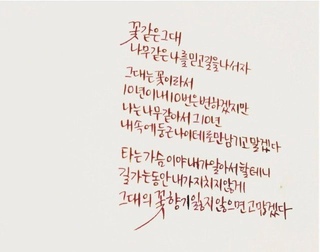 꽃같은 그대
나무같은 나를 믿고 길을 나서자
그대는 꽃이라서
10년이면 10번은 변하겠지만
나는 나무 같아서 그 10년
내 속에 둥근 나이테로만 남기고 말겠다
타는 가슴이야 내가 알아서 할테니
길가는 동안 내가 지치지 않게
그대의 꽃향기 잃지 않으면 고맙겠다